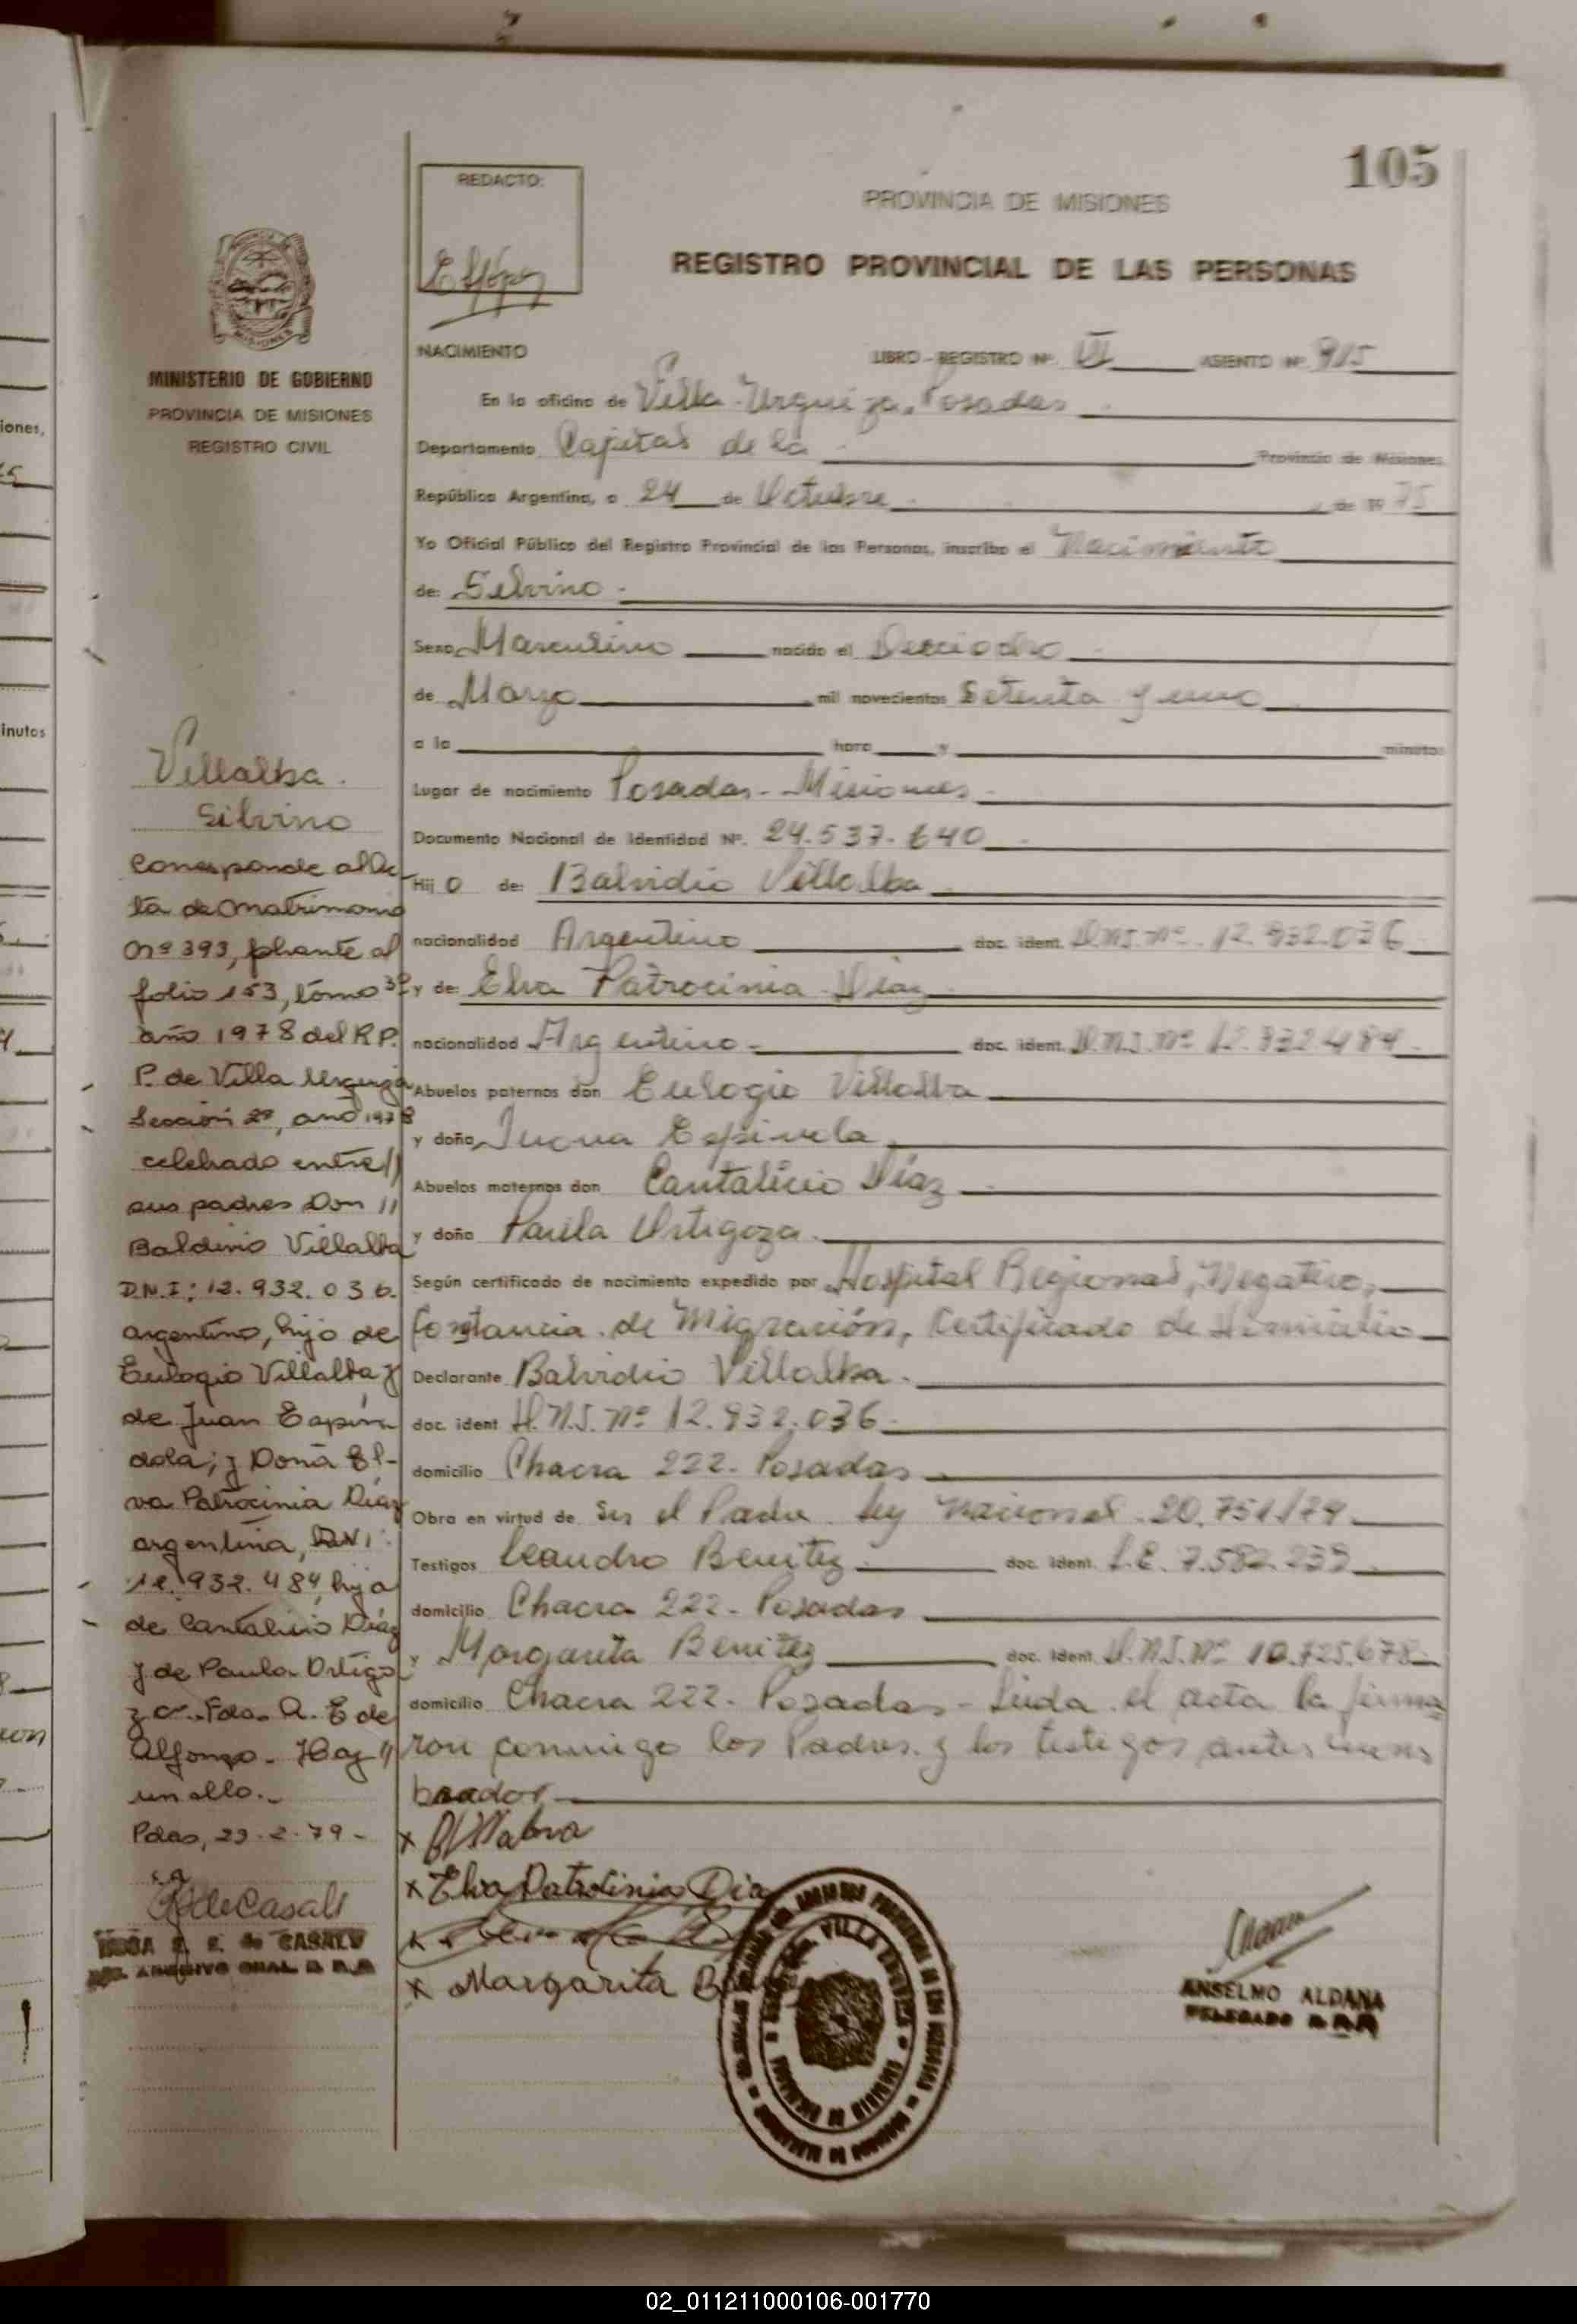 105
REDACTO:
PROVINCIA DE MISIONES
REGISTRO PROVINCIAL DE LAS PERSONAS
MINISTERIO DE GOBIERNO
PROVINCIA DE MISIONES
REGISTRO CIVIL
NACIMIENTO LIBRO - REGISTRO Nº VI ASIENTO Nº 915
En la oficina de Villa Urquiza, Posadas
Departamento Capital de la Provincia de Misiones
República Argentina, a 24 de Octubre de 1975
Yo Oficial Público del Registro Provincial de las Personas, inscribo el Nacimiento
de: Silvino
Sexo Masculino nacido el Dieciocho
de Marzo mil novecientos Setenta y uno
a la hora y minutos
Lugar de nacimiento Posadas - Misiones
Documento Nacional de Identidad Nº. 24.537.640
Hijo de: Balvidio Villalba
nacionalidad Argentino doc. ident. D.N.I. Nº 12.932.036
y de: Elva Patrocinia Diaz
nacionalidad Argentino doc. ident. D.N.I. Nº 12.932.484
Abuelos paternos don Eulogio Villalba
y doña Juana Espindola
Abuelos maternos don Cantalicio Díaz
y doña Paula Ortigoza
Según certificado de nacimiento expedido por Hospital Regional, Negativo,
Constancia de Migración, Certificado de Domicilio
Declarante Balvidio Villalba
doc. ident D.N.I. Nº 12.932.036
domicilio Chacra 222 - Posadas
Obra en virtud de Ser el Padre Ley Nacional 20.751/74
Testigos Leandro Benitez doc. ident. L.E. 7.582.239
domicilio Chacra 222 - Posadas
y Margarita Benitez doc. ident. D.N.I. Nº 10.725.678
domicilio Chacra 222 - Posadas - Leida el acta la firma
ron conmigo los Padres y los testigos antes nom
brados
x BVillalva
x Elva Patrosinia Dia
x
x Margarita B
ANSELMO ALDANA
DELEGADO R.P.P.
Villalba
Silvino
Corresponde al Ac
ta de Matrimonio
Nº 393, obrante al
folio 153, tomo 3º
año 1978 del R.P.
P. de Villa Urquiza
Sección 2ª, año 1978
celebrado entre //
sus padres Don //
Baldivio Villalba
D.N.I: 12.932.036.
argentino, hijo de
Eulogio Villalba y
de Juan Espin
dola; y Doña El-
va Patrocinia Díaz
argentina, DNI:
12.932.484, hija
de Cantalicio Díaz
y de Paula Ortigo
za. Fdo. A. E de
Alfonzo - Hay //
un sello.-
Pdas, 23-2-79-
deCasals